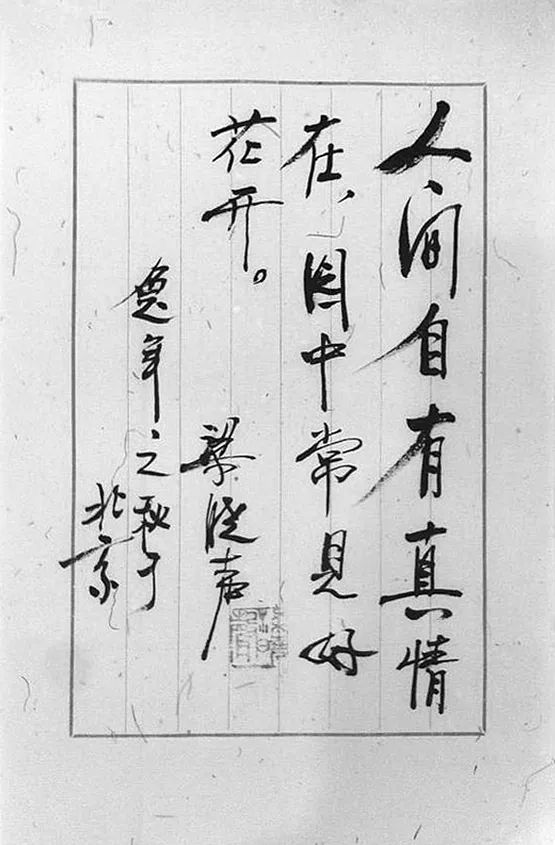 人间自有真情
在、图中常见好
花开。
梁晓声
兔年之秋于
北京